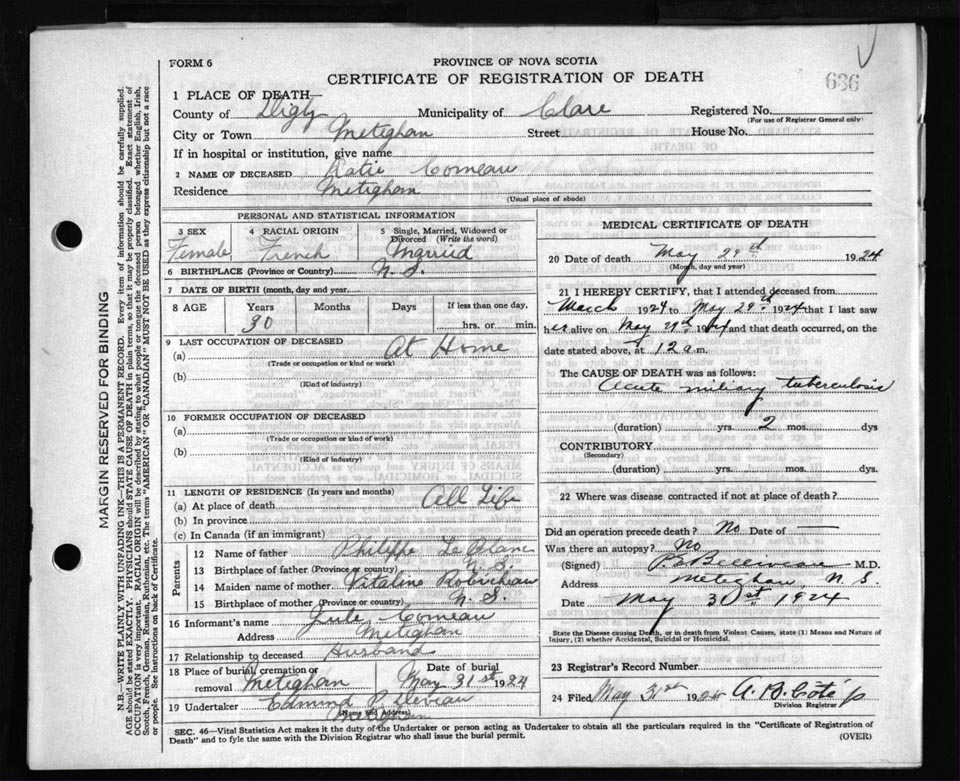 FORM 6
PROVINCE OF NOVA SCOTIA
CERTIFICATE OF REGISTRATION OF DEATH
636
1 PLACE OF DEATH—
County of Digby Municipality of Clare Registered No.
(For use of Registrar General only)
City or Town Meteghan Street House No.
If in hospital or institution, give name
2 NAME OF DECEASED Katie Comeau
Residence Meteghan
(Usual place of abode)
PERSONAL AND STATISTICAL INFORMATION
3 SEX 4 RACIAL ORIGIN 5 Single, Married, Widowed or Divorced (Write the word)
Female French Married
6 BIRTHPLACE (Province or Country) N.S.
7 DATE OF BIRTH (month, day and year)
8 AGE Years Months Days If less than one day,
30 hrs. or min.
9 LAST OCCUPATION OF DECEASED
(a) At Home
(Trade or occupation or kind or work)
(b)
(Kind of industry)
10 FORMER OCCUPATION OF DECEASED
(a)
(Trade or occupation or kind of work)
(b)
(Kind of industry)
11 LENGTH OF RESIDENCE (In years and months)
(a) At place of death All Life
(b) In province
(c) In Canada (if an immigrant)
Parents
12 Name of father Philippe Le Blanc
13 Birthplace of father (Province or country) N.S.
14 Maiden name of mother Vitaline Robichau
15 Birthplace of mother (Province or country) N.S.
16 Informant's name Jule Comeau
Address Meteghan
17 Relationship to deceased Husband
18 Place of burial, cremation or removal Meteghan Date of burial May 31st 1924
19 Undertaker Edmund
MEDICAL CERTIFICATE OF DEATH
20 Date of death May 29th 1924
(Month, day and year)
21 I HEREBY CERTIFY, that I attended deceased from
March 1924 to May 29th 1924 that I last saw
her alive on May 29th 1924 and that death occurred, on
date stated above, at 12 a.m.
The CAUSE OF DEATH was as follows:
Acute miliary tuberculosis
(duration) yrs. 2 mos. dys
CONTRIBUTORY
(Secondary)
(duration) yrs. mos. dys
22 Where was disease contracted if not at place of death?
Did an operation precede death? No Date of —
Was there an autopsy? No
(Signed) P. E. Belliveau M.D.
Address Meteghan, N.S.
Date May 31st 1924
State the Disease causing Death, or in death from Violent Causes, state (1) Means and Nature of
Injury, (2) whether Accidental, Suicidal or Homicidal.
23 Registrar's Record Number
24 Filed May 31st 1924 A. B. Coté
Division Registrar
SEC. 46—Vital Statistics Act makes it the duty of the Undertaker or person acting as Undertaker to obtain all the particulars required in the "Certificate of Registration of
Death" and to fyle the same with the Division Registrar who shall issue the burial permit. (OVER)
MARGIN RESERVED FOR BINDING
N.B.—WRITE PLAINLY WITH UNFADING INK—THIS IS A PERMANENT RECORD. Every item of information should be carefully supplied.
AGE should be stated EXACTLY. PHYSICIANS should STATE CAUSE OF DEATH in plain terms, so that it may be properly classified. Exact statement of
OCCUPATION is very important. RACIAL ORIGIN will be described by stating to what people or tongue the deceased person belonged whether English, Irish,
Scotch, French, German, Russian, Ruthenian, etc. The terms "AMERICAN" or "CANADIAN" MUST NOT BE USED as they express citizenship but not a race
or people. See instructions on back of Certificate.